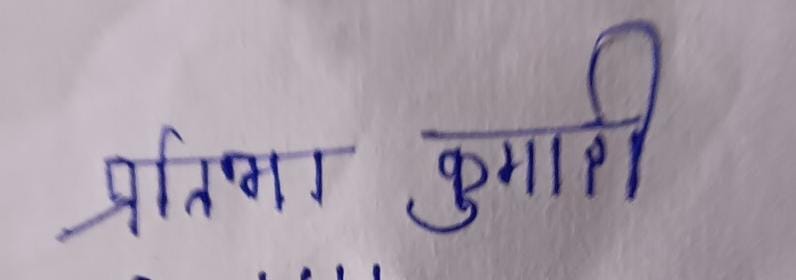 प्रतिमा कुमारी